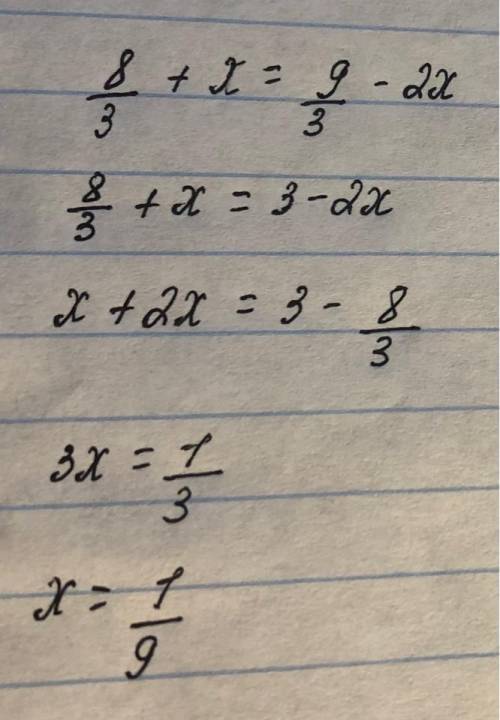 8/3 + x = 9/3 - 2x
8/3 + x = 3 - 2x
x + 2x = 3 - 8/3
3x = 1/3
x = 1/9